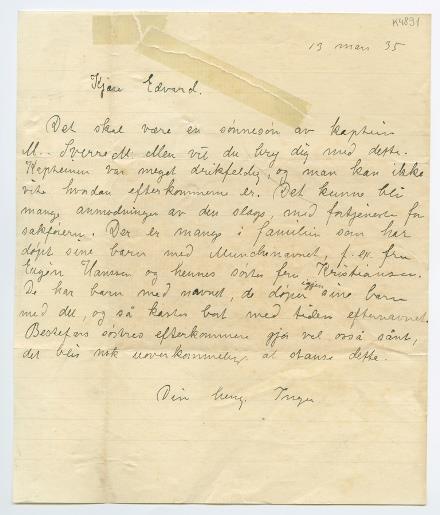 K4891
13 mars 35
Kjære Edvard.
Det skal være en sønnesøn av kaptein
M. Sverre M. eller vil du bry dig med dette.
Kapteinen var meget drikfeldig og man kan ikke
vite hvordan efterkommerne er. Det kunne bli
mange anmodninger av den slags, med fortjeneste for
sakførerne. Der er mange i familien som har
døpt sine barn med Munchnavnet, f. ex. fru
Eugen Hanssen og hennes søster fru Kristiansen.
De har barn med navnet, de døper igjen sine barn
med det, og så kastes bort med tiden efternavnet.
Bestefars søstres efterkommere gjør vel også sånt,
det blir nok uoverkommelig at stanse dette.
Din heng. Inger